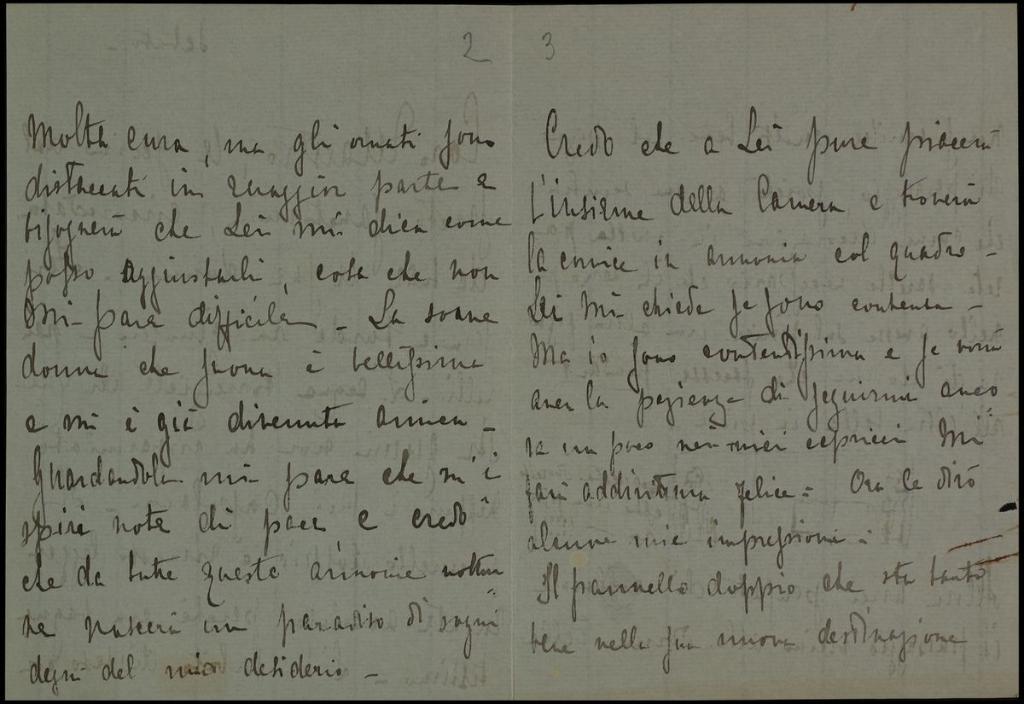 2
Molta cura, ma gli ornati sono
distaccati in maggior parte e
bisognerà che Lei mi dica come
posso aggiustarli, cosa che non
mi pare difficile – La soave
donna che suona è bellissima
e mi è già divenuta amica –
Guardandola mi pare che m'i
spiri note di pace, e credo
che da tutte queste armonie nottur
ne nascerà un paradiso di sogni
degni del mio desiderio –
3
Credo che a Lei pure piacerà
l'insieme della Camera e troverà
la cornice in armonia col quadro –
Lei mi chiede se sono contenta –
Ma io sono contentissima e se vorrà
aver la pazienza di seguirmi anco
ra un poco nei miei capricci mi
farà addirittura felice = Ora le dirò
alcune mie impressioni =
Il pannello doppio che sta tanto
bene nella sua nuova destinazione